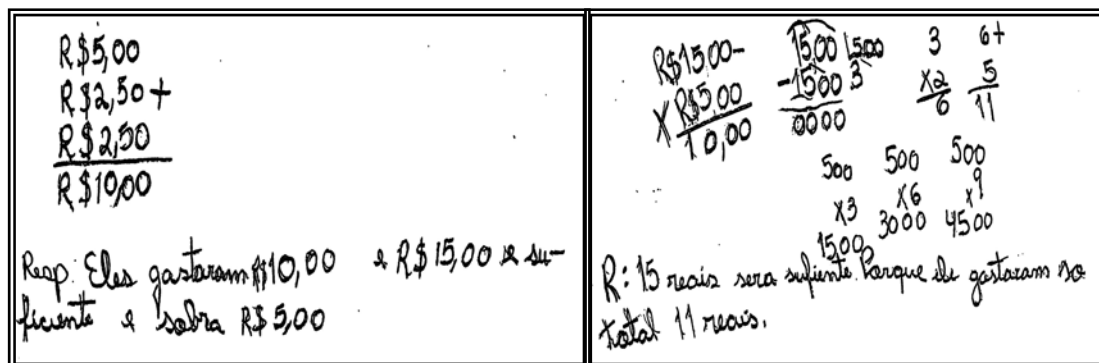 R$5,00
R$2,50+
R$2,50
R$10,00
Resp: Eles gastaram R$10,00 e R$15,00 e su-
ficiente e sobra R$ 5,00
R$1500-
X R$5,00
10,00
1500 |500
-1500 3
0000
3
X2
6
6+
5
11
500
x3
1500
500
x6
3000
500
x9
4500
R: 15 reais sera sufiente. Porque ele gastaram no
total 11 reais.